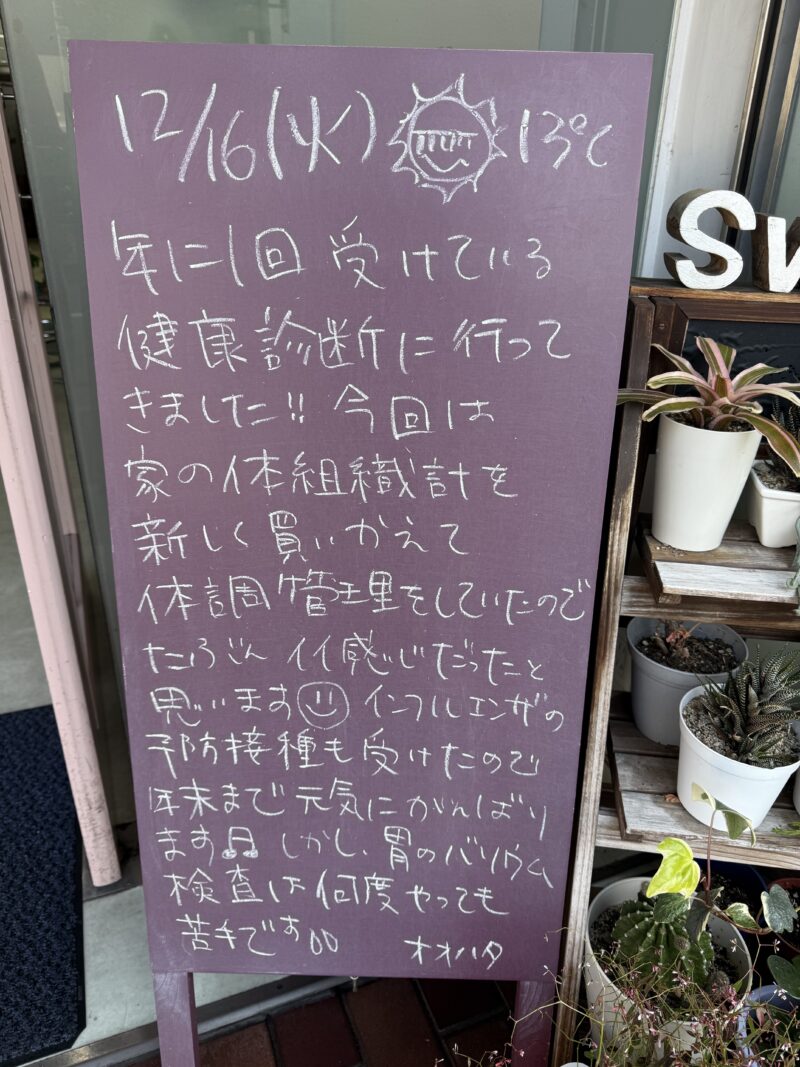 12/16(火) 13℃
年に1回 受けている
健康診断に行って
きました!! 今回は
家の体組織計を
新しく買いかえて
体調管理をしていたので
たぶん イイ感じだったと
思います インフルエンザの
予防接種も受けたので
年末まで元気にがんばり
ます♫ しかし、胃のバリウム
検査は何度やっても
苦手です オオハタ
Sw